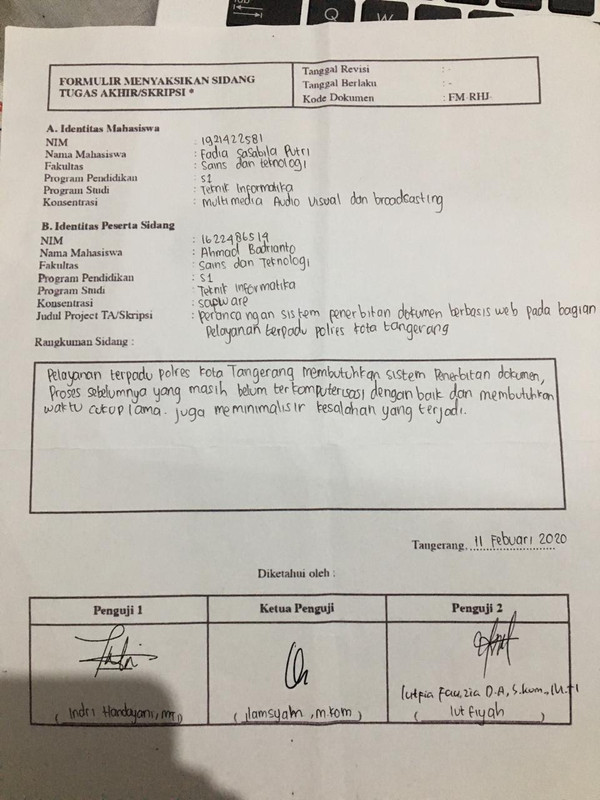 Q W
FORMULIR MENYAKSIKAN SIDANG
TUGAS AKHIR/SKRIPSI *
Tanggal Revisi : -
Tanggal Berlaku : -
Kode Dokumen : FM-RHJ-
A. Identitas Mahasiswa
NIM : 1921422581
Nama Mahasiswa : Fadia Sasabila Putri
Fakultas : Sains dan teknologi
Program Pendidikan : S1
Program Studi : Teknik Informatika
Konsentrasi : multimedia Audio Visual dan broadcasting
B. Identitas Peserta Sidang
NIM : 1622486514
Nama Mahasiswa : Ahmad Badrianto
Fakultas : Sains dan Teknologi
Program Pendidikan : S1
Program Studi : Teknik Informatika
Konsentrasi : sopware
Judul Project TA/Skripsi : Perancangan sistem penerbitan dokumen berbasis web pada bagian
Pelayanan terpadu polres kota tangerang
Rangkuman Sidang :
Pelayanan terpadu polres kota Tangerang membutuhkan sistem Penerbitan dokumen,
Proses sebelumnya yang masih belum terkomputerisasi dengan baik dan membutuhkan
waktu cukup lama. juga meminimalisir kesalahan yang terjadi.
Tangerang, 11 Febuari 2020
Diketahui oleh :
Penguji 1 Ketua Penguji Penguji 2
lutfia Fauzia D.A, S.kom., M.TI
( Indri Handayani, MTI ) ( ilamsyah, m.kom ) ( lutfiyah )